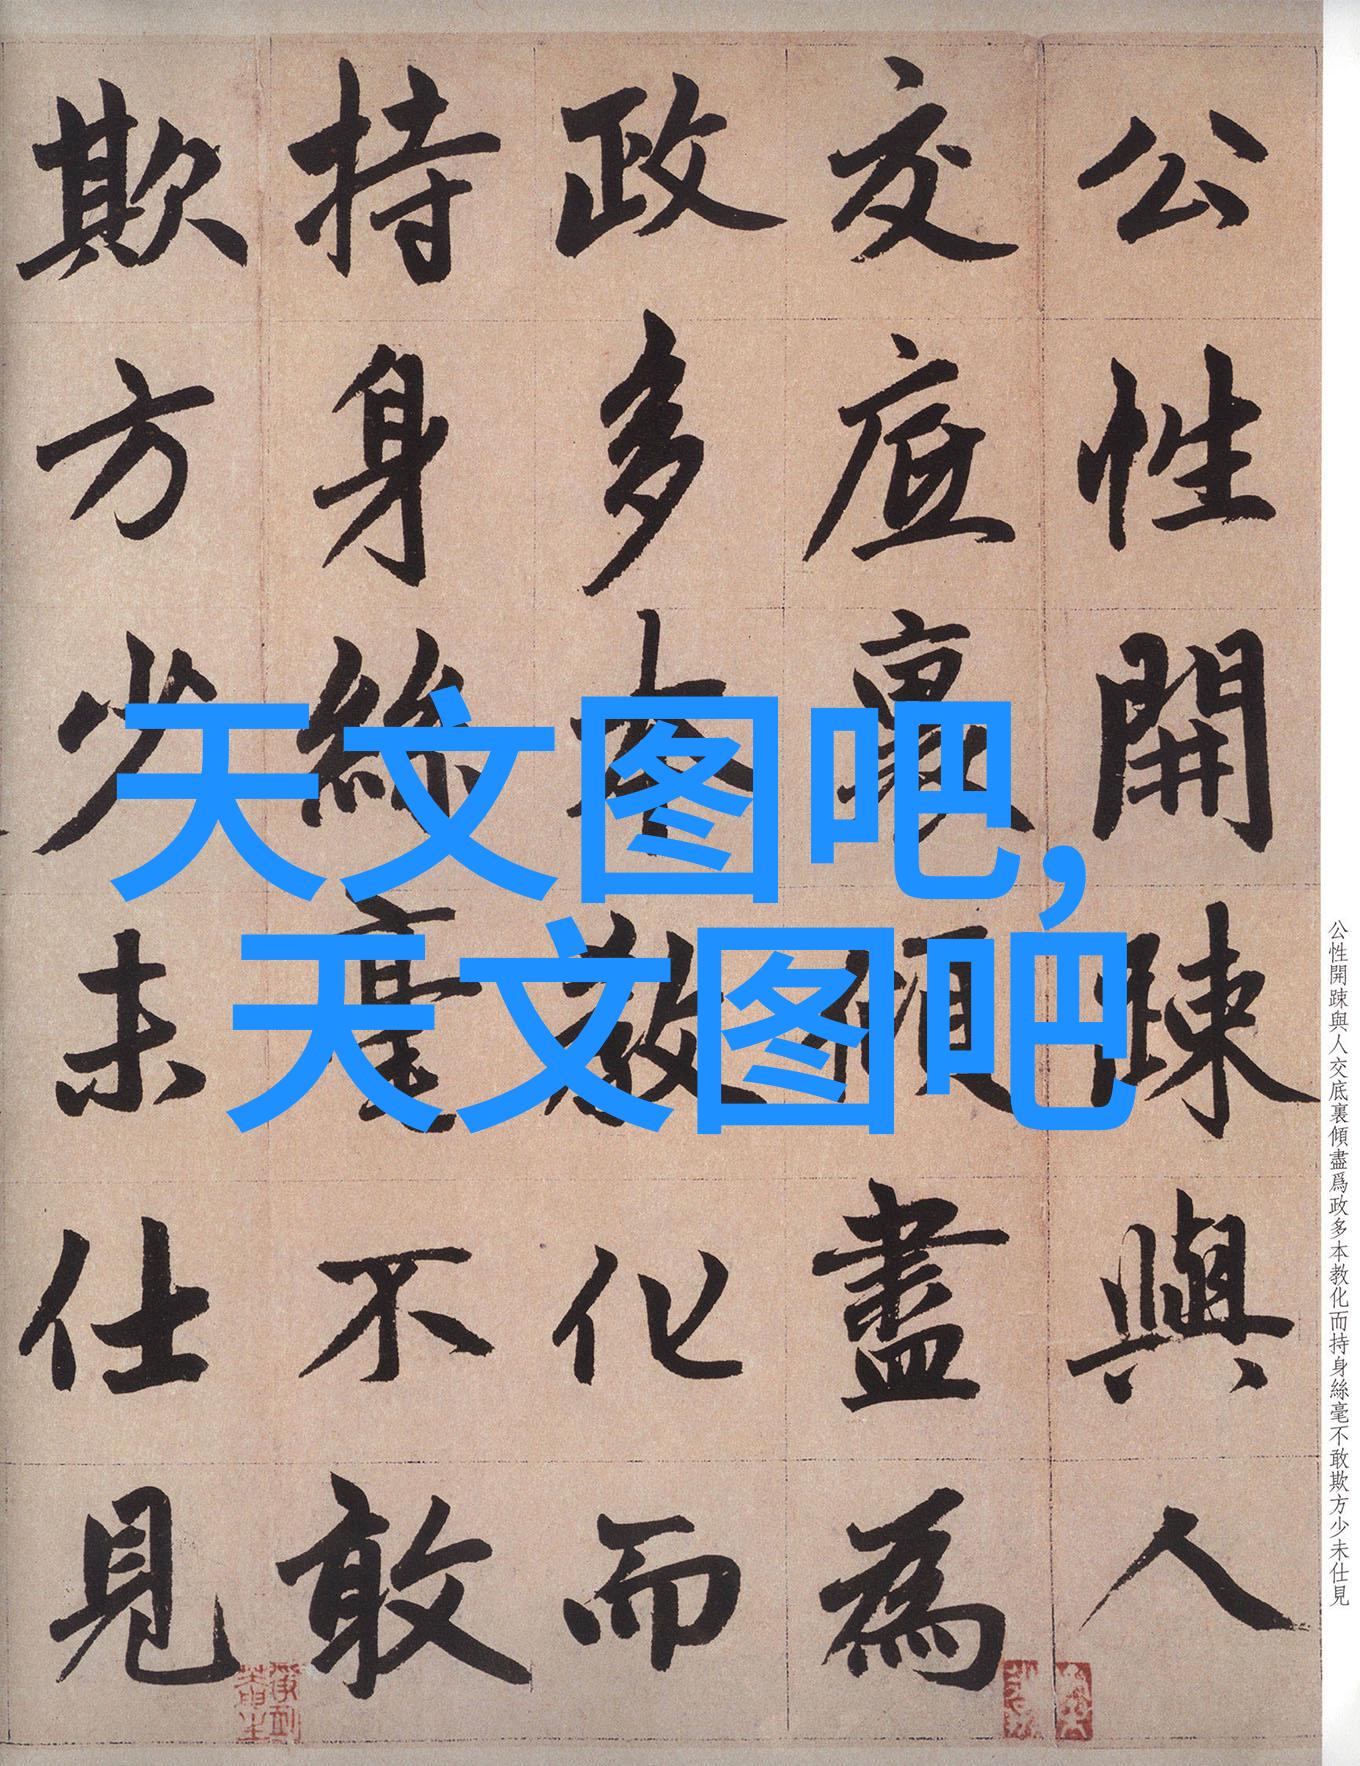 公性開踈與人
交底裏傾盡為
政多本教化而
持身絲毫不敢
欺方少未仕見
天文图吧,
天文图吧
公性開踈與人交底裏傾盡爲政多本教化而持身絲毫不敢欺方少未仕見